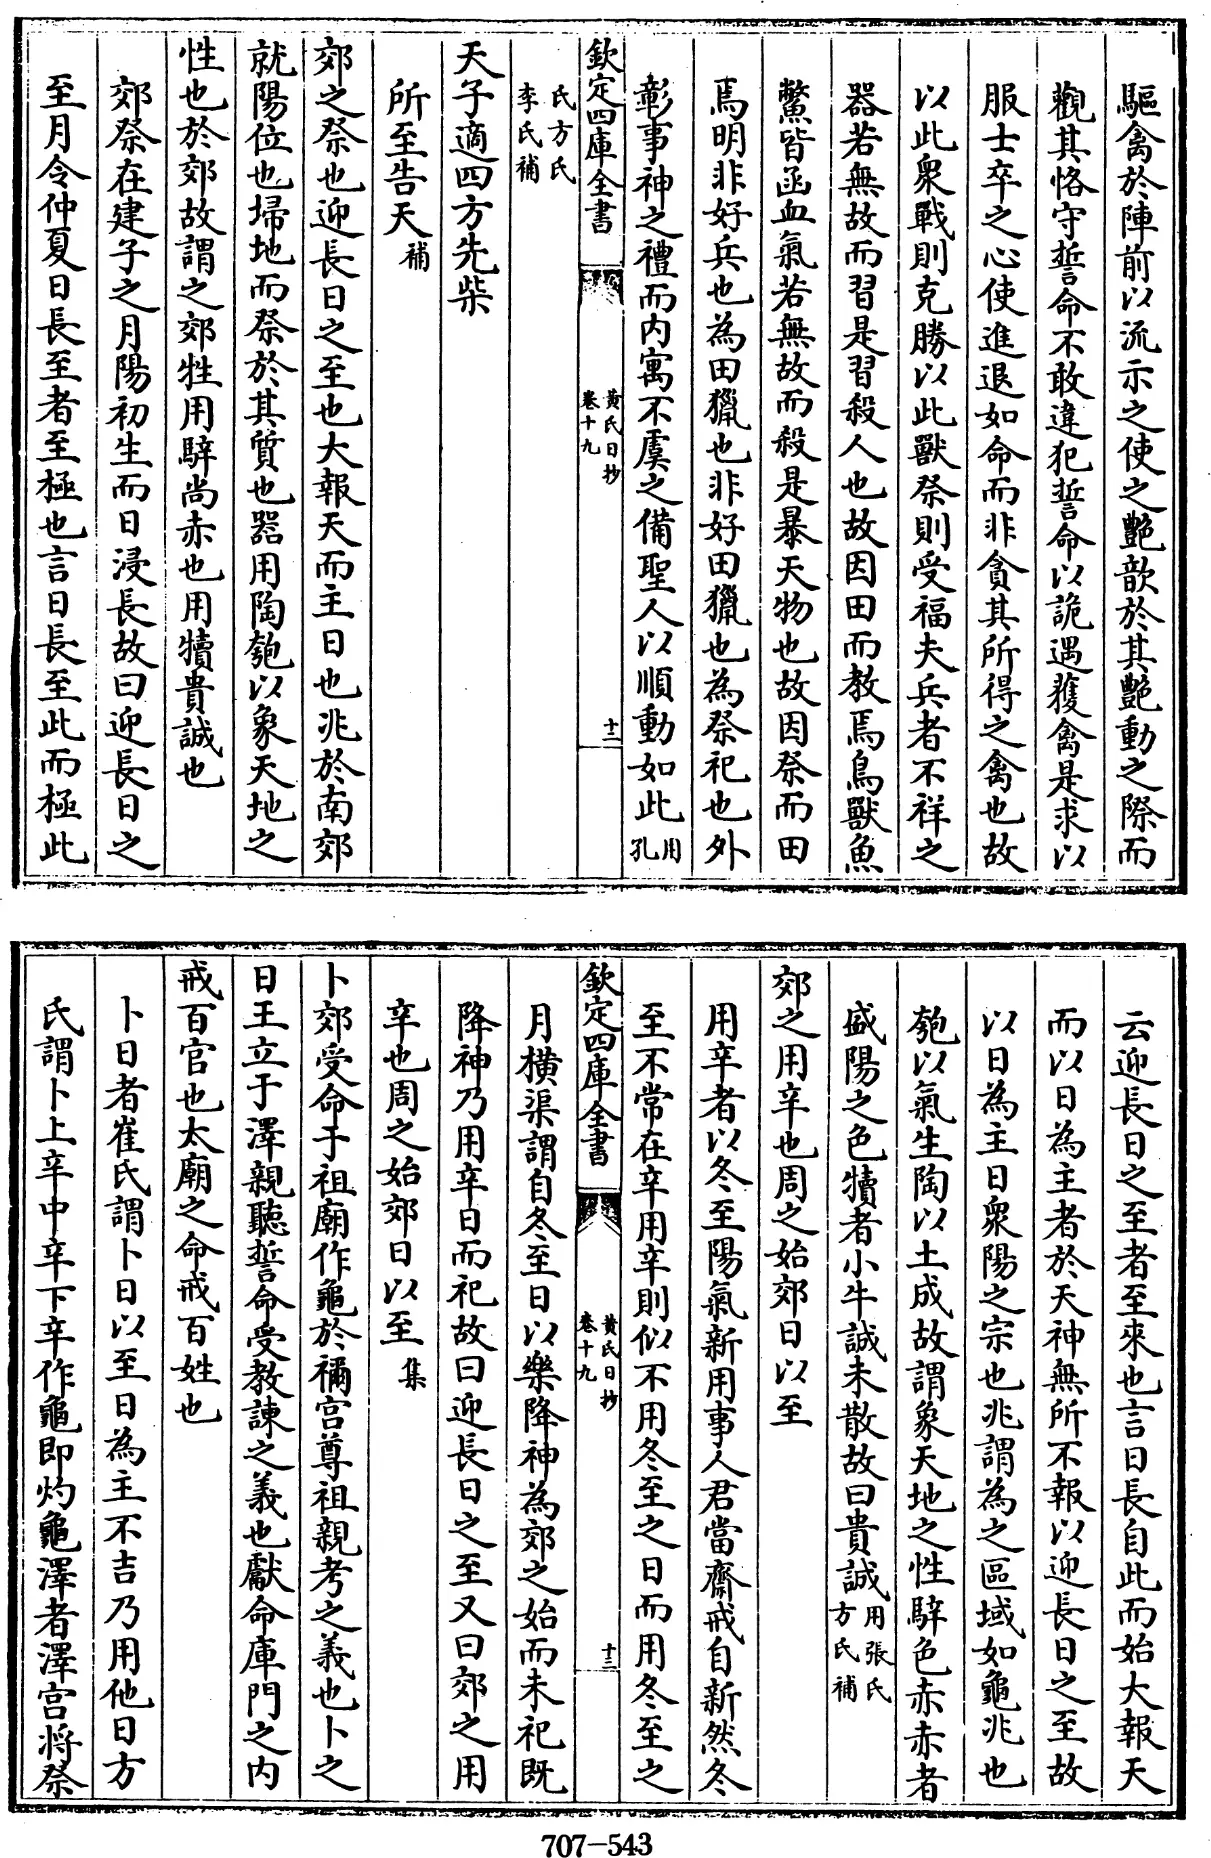 驅禽於陣前以流示之使之艷歆於其艷動之際而
觀其恪守誓命不敢違犯誓命以詭遇獲禽是求以
服士卒之心使進退如命而非貪其所得之禽也故
以此衆戰則克勝以此獸祭則受福夫兵者不祥之
器若無故而習是習殺人也故因田而教焉鳥獸魚
鱉皆函血氣若無故而殺是暴天物也故因祭而田
焉明非好兵也為田獵也非好田獵也為祭祀也外
彰事神之禮而内寓不虞之備聖人以順動如此用孔
欽定四庫全書
黄氏日抄
卷十九
十二
氏方氏
李氏補
天子適四方先柴
所至告天補
郊之祭也迎長日之至也大報天而主日也兆於南郊
就陽位也埽地而祭於其質也器用陶匏以象天地之
性也於郊故謂之郊牲用騂尚赤也用犢貴誠也
郊祭在建子之月陽初生而日浸長故曰迎長日之
至月令仲夏日長至者至極也言日長至此而極此
云迎長日之至者至來也言日長自此而始大報天
而以日為主者於天神無所不報以迎長日之至故
以日為主日衆陽之宗也兆謂為之區域如龜兆也
匏以氣生陶以土成故謂象天地之性騂色赤赤者
盛陽之色犢者小牛誠未散故曰貴誠用張氏方氏補
郊之用辛也周之始郊日以至
用辛者以冬至陽氣新用事人君當齋戒自新然冬
至不常在辛用辛則似不用冬至之日而用冬至之
欽定四庫全書
黄氏日抄
卷十九
十三
月橫渠謂自冬至日以樂降神為郊之始而未祀既
降神乃用辛日而祀故曰迎長日之至又曰郊之用
辛也周之始郊日以至集
卜郊受命于祖廟作龜於禰宮尊祖親考之義也卜之
日王立于澤親聽誓命受教諫之義也獻命庫門之内
戒百官也太廟之命戒百姓也
卜日者崔氏謂卜日以至日為主不吉乃用他日方
氏謂卜上辛中辛下辛作龜即灼龜澤者澤宮將祭
707-543